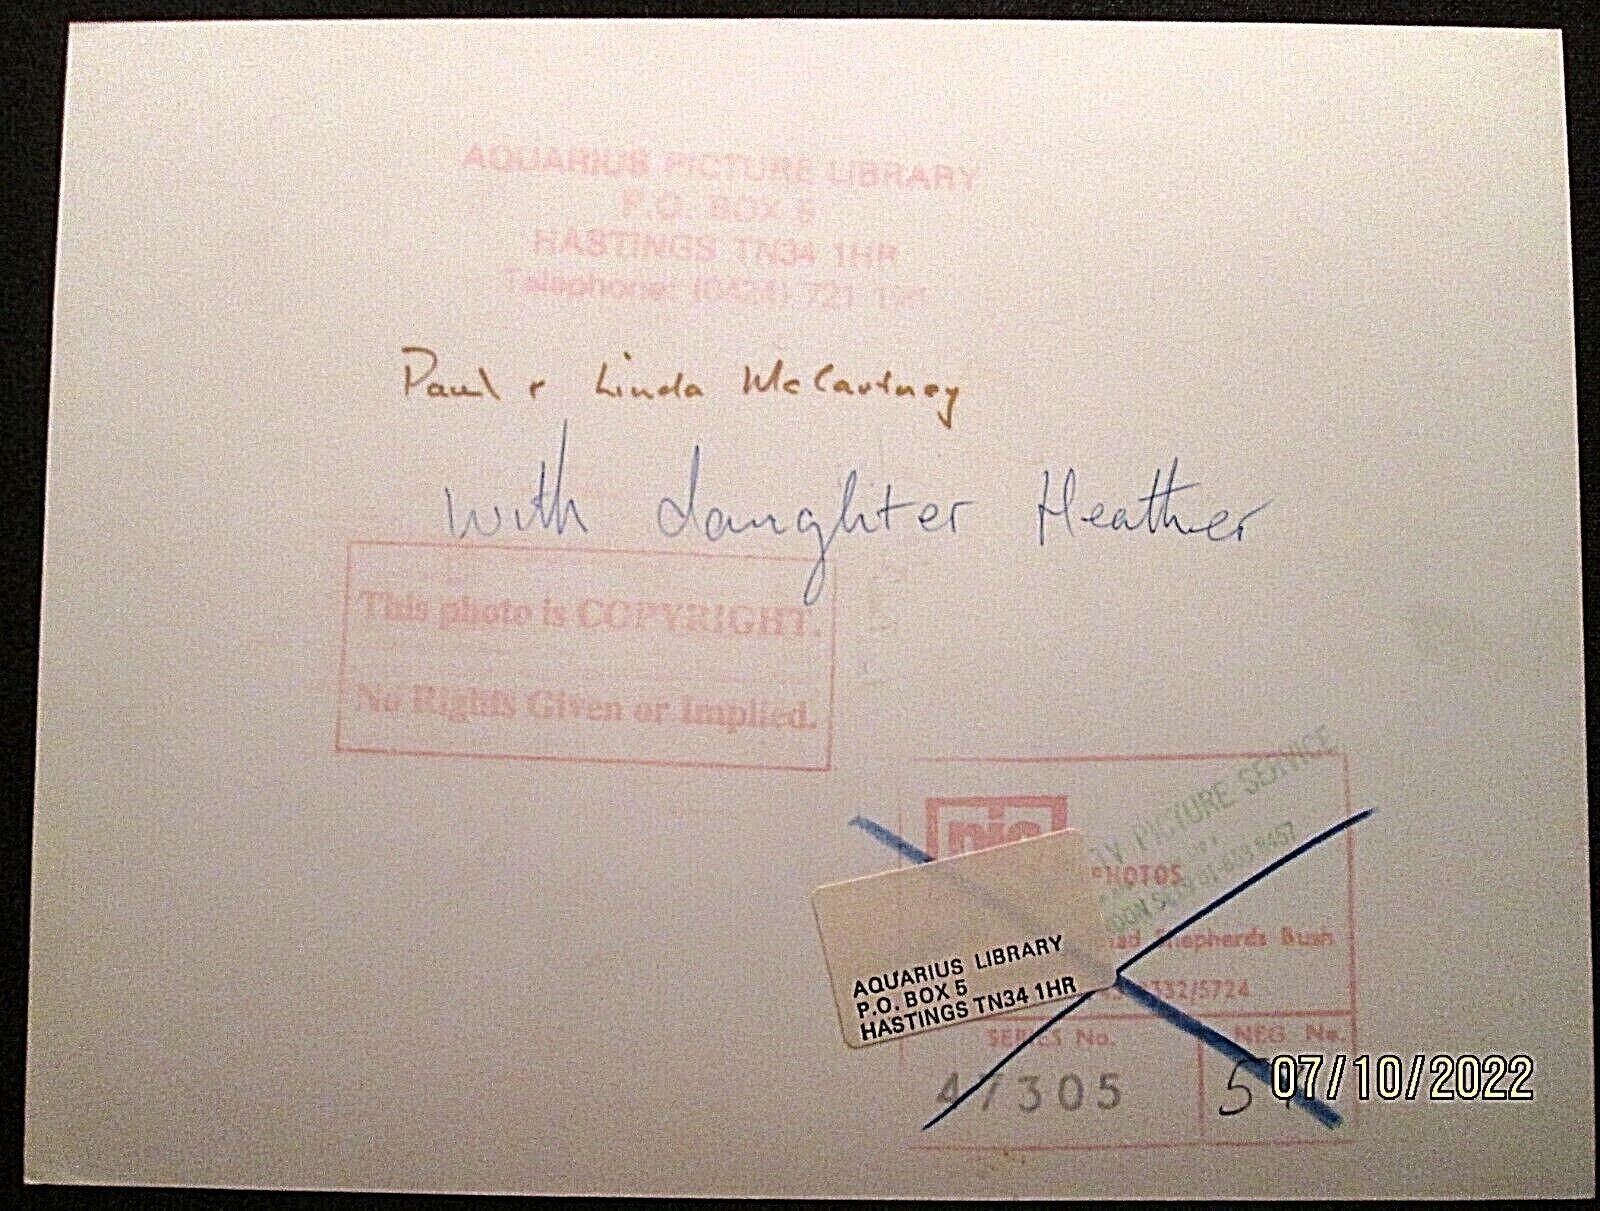 AQUARIUS PICTURE LIBRARY
P.O. BOX 5
HASTINGS TN34 1HR
Telephone: (0424) 721
Paul & Linda McCartney
with daughter Heather
This photo is COPYRIGHT.
No Rights Given or Implied.
pic
PICTURE SERVICE
PHOTOS
Shepherds Bush
332/5724
AQUARIUS LIBRARY
P.O. BOX 5
HASTINGS TN34 1HR
SERIES No.
NEG. No.
47305
07/10/2022